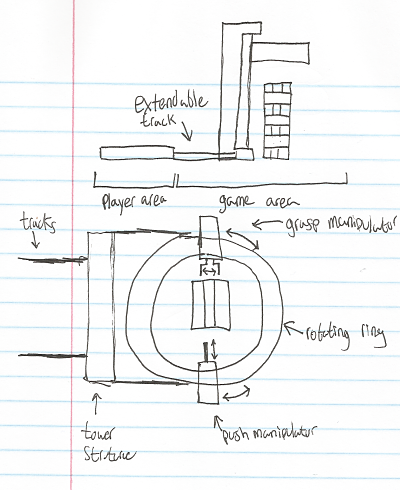 Extendable
track
player area
game area
tracks
grasp manipulator
rotating ring
tower
Struture
push manipulator